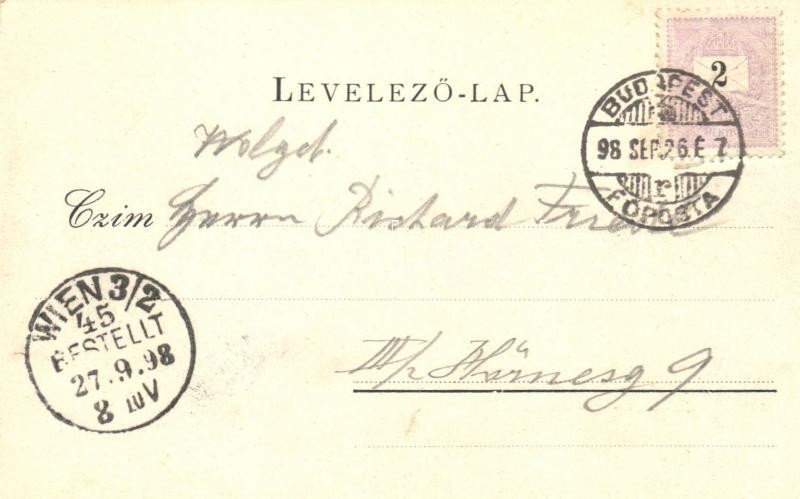 2
LEVELEZŐ-LAP.
BUDAPEST
98 SEP. 26. É 7
r
FŐPOSTA
Wolgeb.
Czim Herrn Richard
WIEN 3/2
45
BESTELLT
27.9.98
8
V
III/2 9